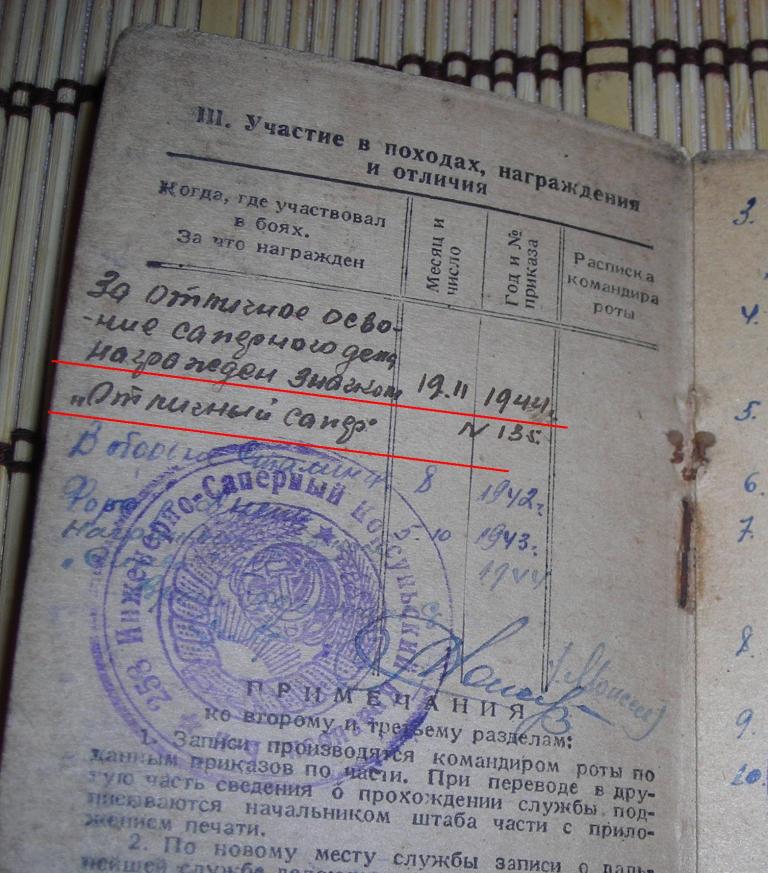 III. Участие в походах, награждения
и отличия
Когда, где участвовал
в боях.
За что награжден
Месяц и
число
Год и №
приказа
Расписка
командира
роты
За отличное осво-
-ние саперного дела
награжден значком 19.11 1944г.
„Отличный сапер" N 135.
В оборо 8 1942г.
5.10 1943г.
1944
253 Инженерно-Саперный Корсуньский
ПРИМЕЧАНИЯ
ко второму и третьему разделам:
1. Записи производятся командиром роты по
данным приказов по части. При переводе в дру-
гую часть сведения о прохождении службы под-
писываются начальником штаба части с прило-
жением печати.
2. По новому месту службы записи о даль-
нейшей службе
3.
4.
5.
6.
7.
8.
9.
10.